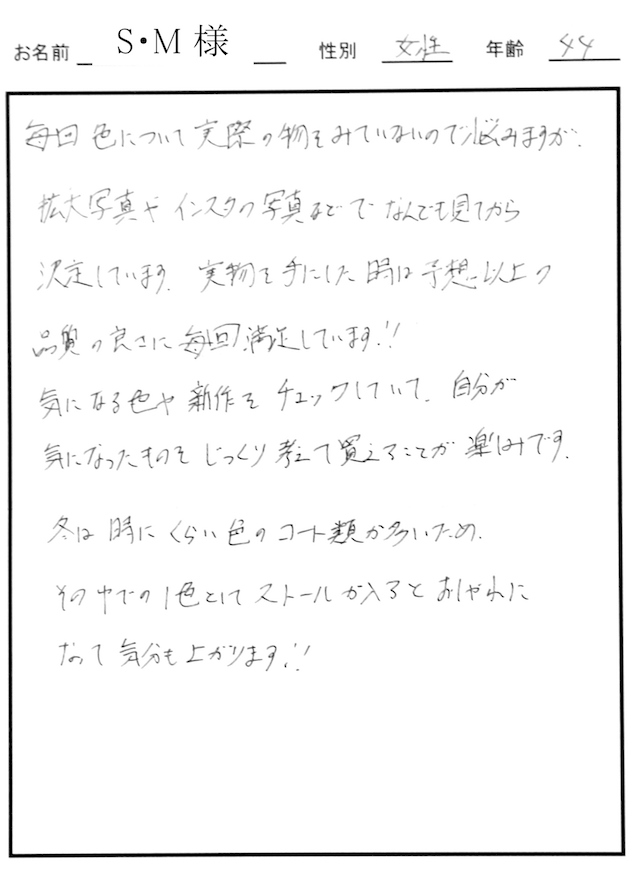 お名前 S・M 様 性別 女性 年齢 44
毎回 色について 実際の物をみていないので悩みますが、
拡大写真や インスタの写真などで なんでも見てから
決定しています。実物を手にした時は予想以上の
品質の良さに毎回満足しています!!
気になる色や新作をチェックしていて、自分が
気になったものをじっくり考えて買えることが楽しみです。
冬は時にくらい色のコート類が多いため、
その中での1色としてストールが入るとおしゃれに
なって気分も上がります!!